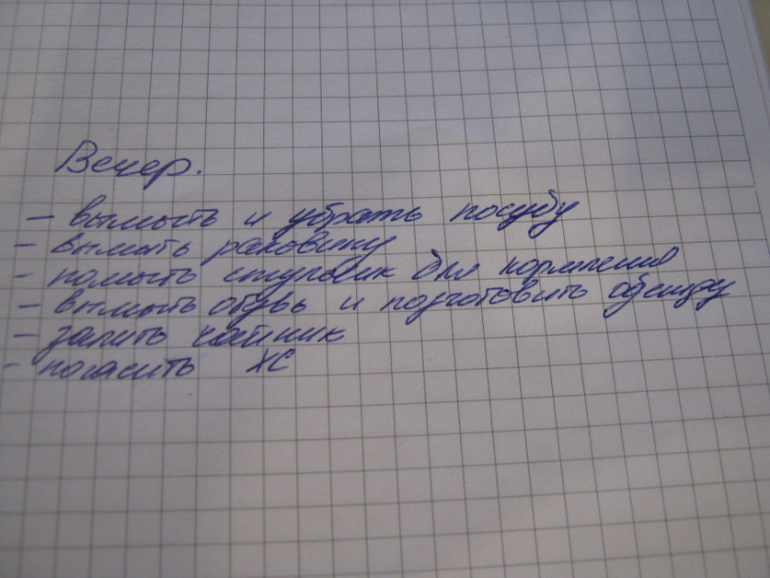 Вечер.
- вымыть и убрать посуду
- вымыть раковину
- помыть стульчик для кормления
- вымыть обувь и подготовить одежду
- залить чайник
- погасить ЖС